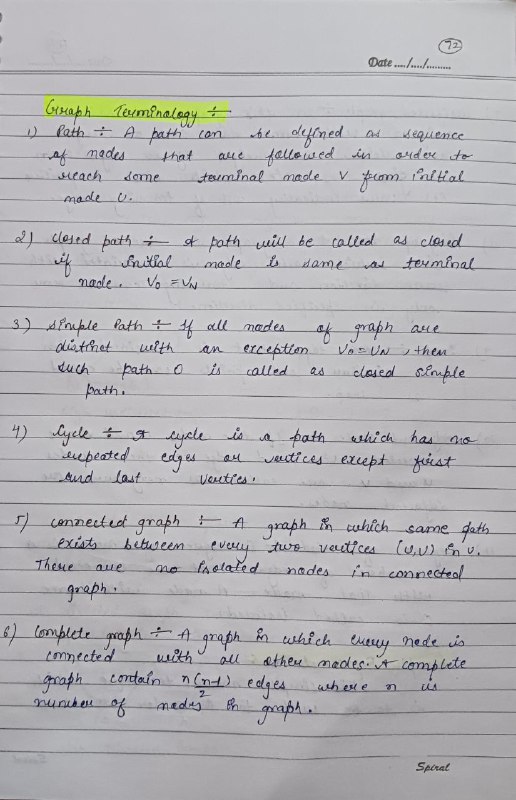 72
Date ..../..../.........
Graph Terminology ÷
1) Path ÷ A path can be defined as sequence
of nodes that are followed in order to
reach some terminal node V from initial
node U.
2) closed path ÷ A path will be called as closed
if initial node is same as terminal
node. V0 = VN
3) simple Path ÷ If all nodes of graph are
distinct with an exception V0 = VN , then
such path 0 is called as closed simple
path.
4) Cycle ÷ A cycle is a path which has no
repeated edges or vertices except first
and last vertics.
5) connected graph ÷ A graph in which some path
exists between every two vertices (u,v) in v.
There are no isolated nodes in connected
graph.
6) Complete graph ÷ A graph in which every node is
connected with all other nodes. A complete
graph contain n(n-1)/2 edges where n is
number of nodes in graph.
Spiral